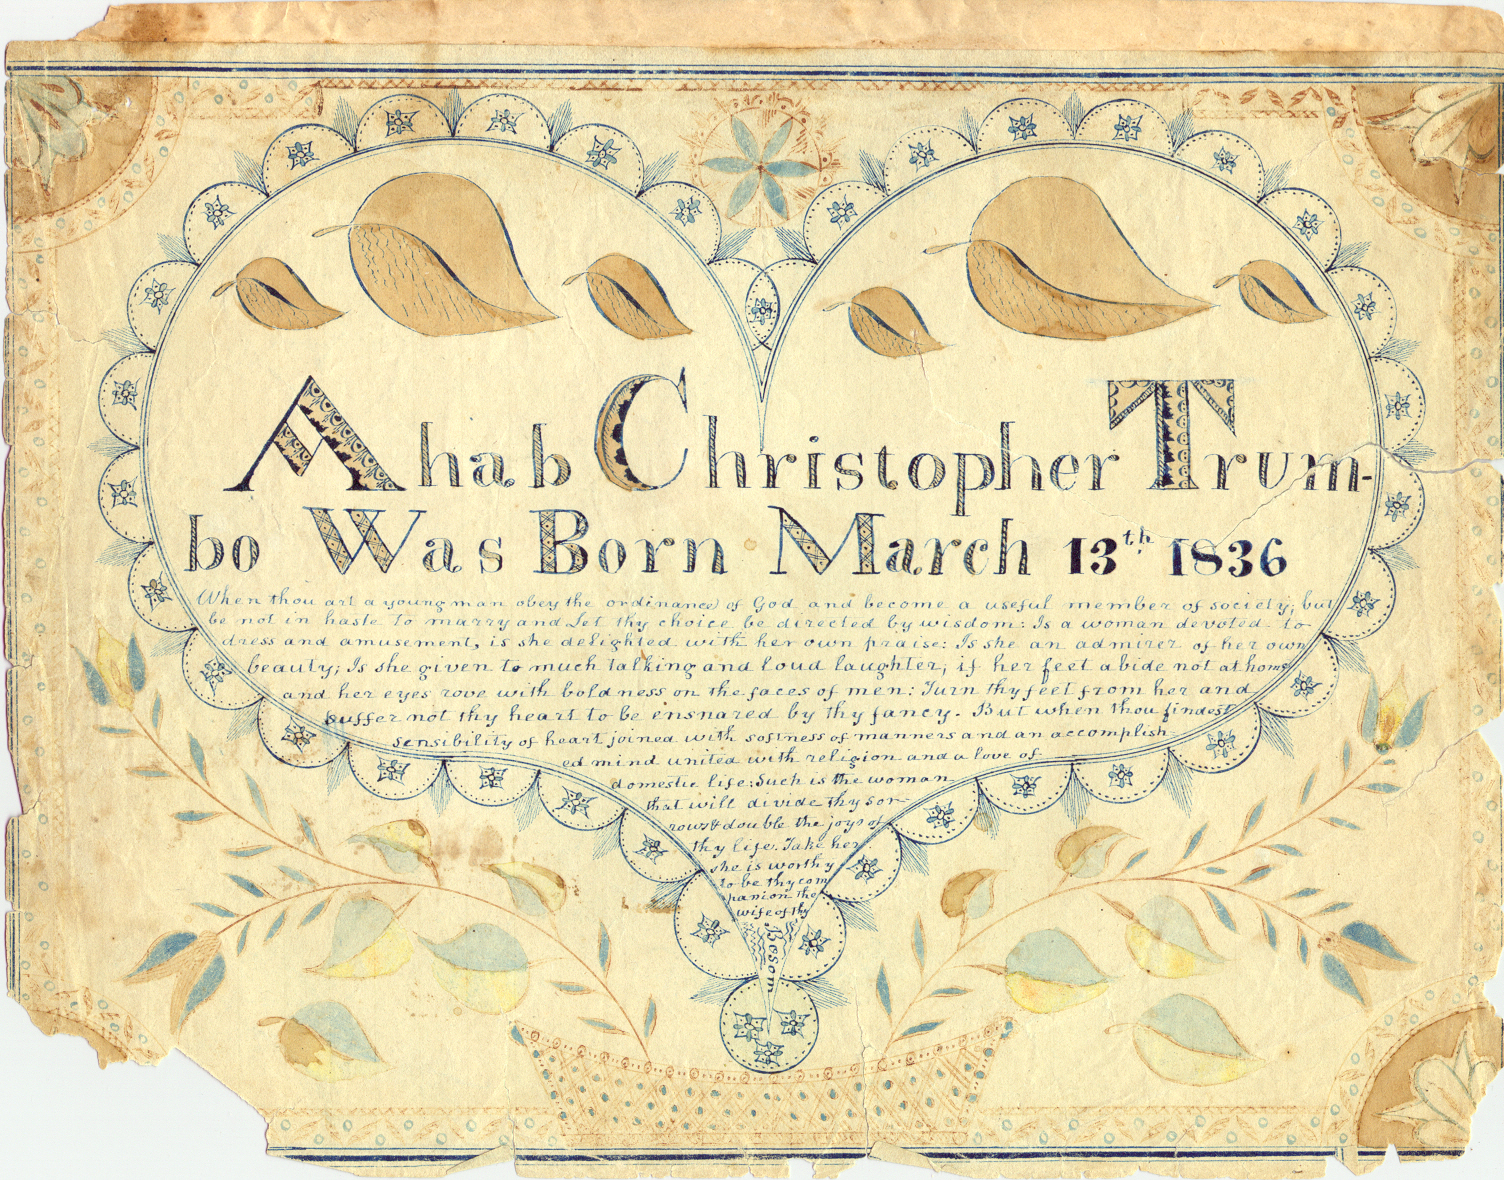 Ahab Christopher Trum-
bo Was Born March 13th 1836
When thou art a young man obey the ordinances of God and become a useful member of society; but
be not in haste to marry and let thy choice be directed by wisdom: Is a woman devoted to
dress and amusement, is she delighted with her own praise: Is she an admirer of her own
beauty; Is she given to much talking and loud laughter; if her feet abide not at home
and her eyes rove with boldness on the faces of men: Turn thy feet from her and
suffer not thy heart to be ensnared by thy fancy. But when thou findest
sensibility of heart joined with softness of manners and an accomplish
ed mind united with religion and a love of
domestic life: Such is the woman
that will divide thy sor-
rows & double the joys of
thy life. Take her
she is worthy
to be thy com
panion the
wife of thy
Bosom